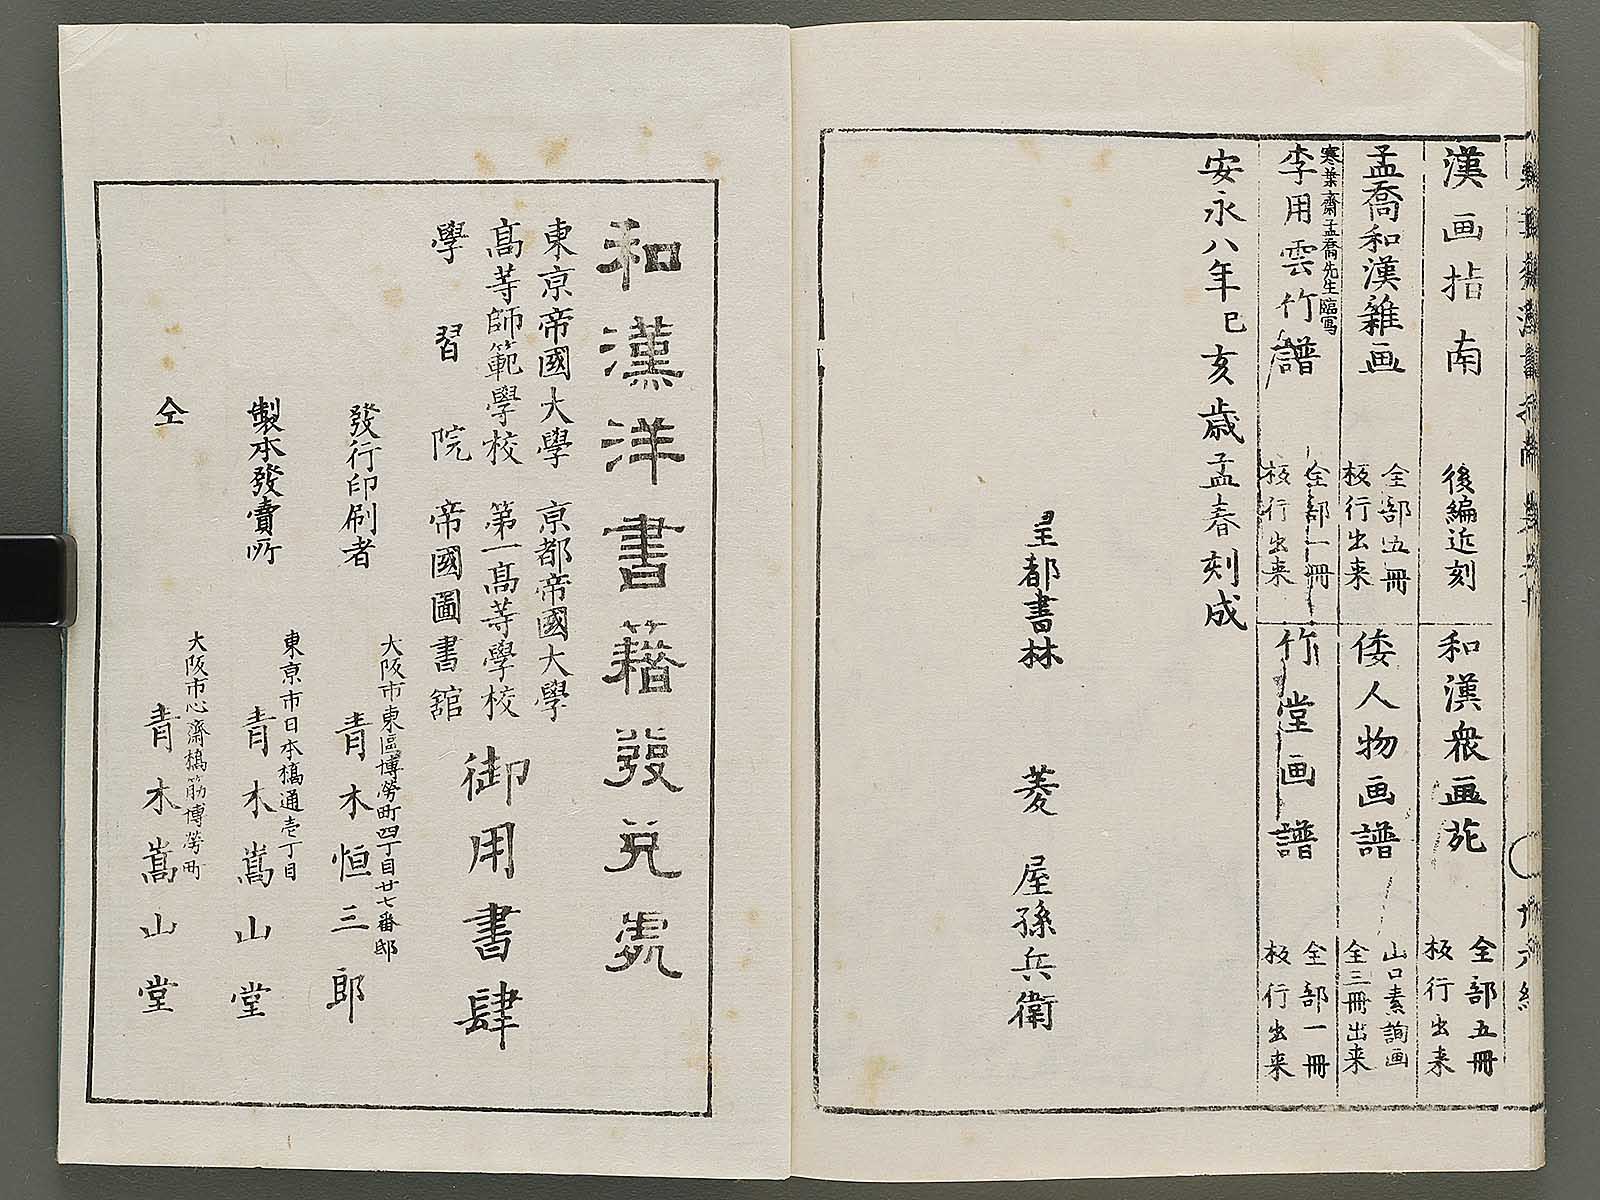 漢画指南
後編近刻
和漢衆画苑
全部五冊
板行出来
孟喬和漢雑画
全部五冊
板行出来
倭人物画譜
山口素詢画
全三冊出来
寒葉齋孟喬先生臨寫
李用雲竹譜
全部一冊
板行出来
竹堂画譜
全部一冊
板行出来
安永八年己亥歳孟春刻成
皇都書林 菱屋孫兵衛
和漢洋書籍發兌處
東京帝國大學 京都帝國大學
高等師範學校 第一高等學校
學習院 帝國圖書館
御用書肆
大阪市東區博勞町四丁目廿七番邸
發行印刷者 青木恒三郎
東京市日本橋通壱丁目
製本發賣所 青木嵩山堂
大阪市心齋橋筋博勞町
仝 青木嵩山堂